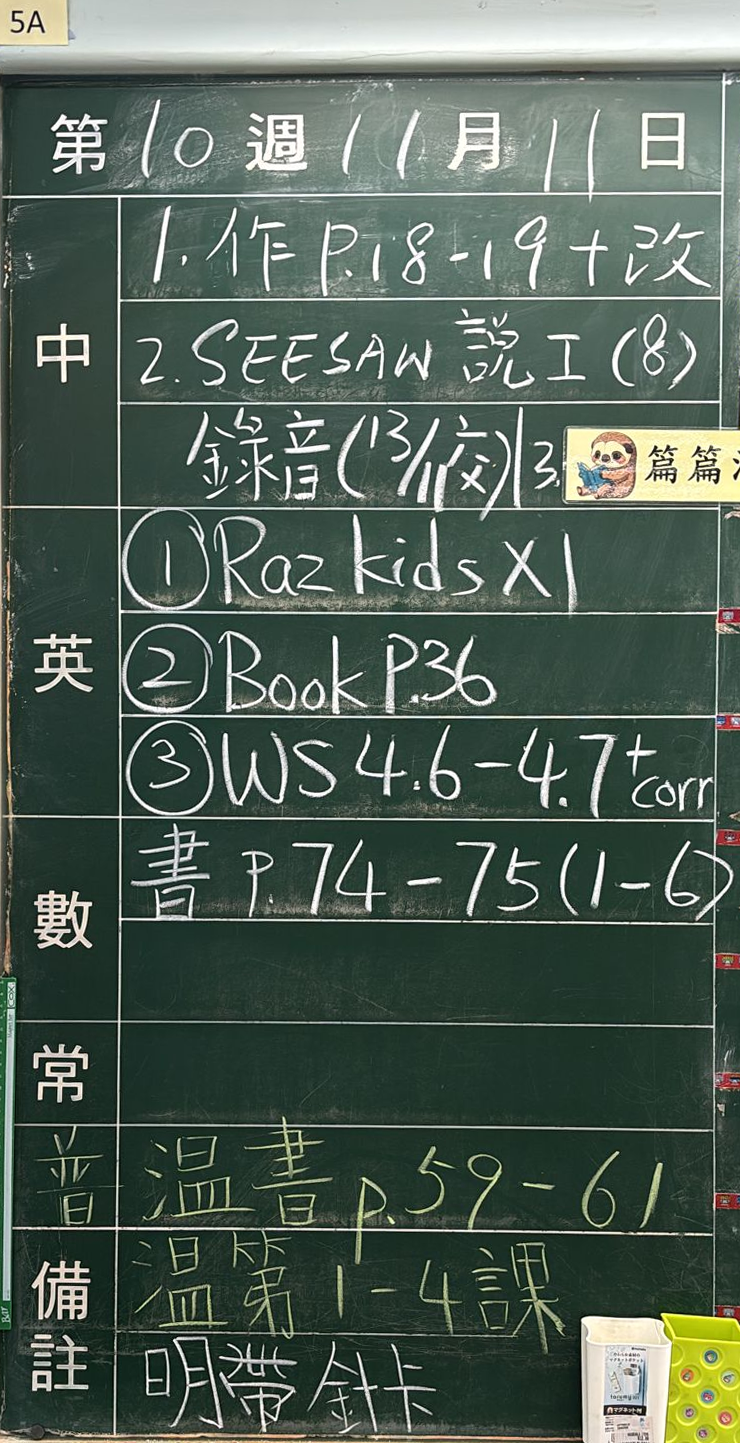 5A
第10週11月11日
中
1.作 P.18-19+改
2.SEESAW 說工(8)
錄音(13/11交)|3.
篇篇
英
①Raz kids X1
②Book P.36
③WS 4.6-4.7+corr
數
書 P.74-75(1-6)
常
普 温書 p.59-61
温第1-4課
備註
明帶針卡